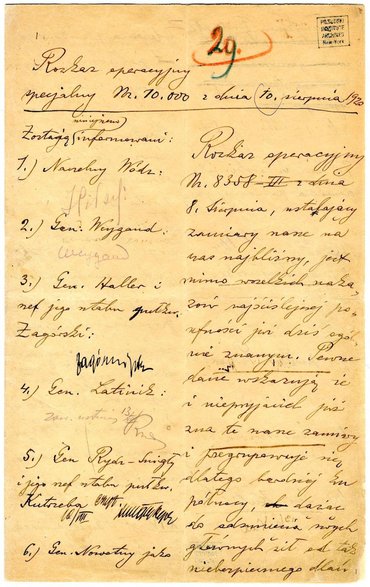 29.
PIŁSUDSKI
INSTITUTE
ARCHIVES
New-York
Rozkaz operacyjny
specjalny Nr. 10.000 z dnia 10. sierpnia 1920
niniejszem
Zostają informowani:
1.) Naczelny Wódz:
2.) Gen. Weygand:
Weygand
3.) Gen. Haller i
szef jego sztabu pułk.
Zagórski:
Zagórski
4.) Gen. Latinik:
5.) Gen Rydz-Śmigły
i jego szef sztabu pułk.
Kutrzeba
6.) Gen. Nowotny jako
Rozkaz operacyjny
Nr. 8358-III z dnia
8. Sierpnia, ustalający
zamiary nasze na
czas najbliższy, jest
mimo wszelkich naka-
zów najściślejszej po-
ufności już dziś ogól-
nie znanym. Pewne
dane wskazują, że
i nieprzyjaciel już
zna te nasze zamiary
i przegrupowuje się
dlatego bardziej ku
północy, dążąc
do głównych sił od tak
niebezpiecznego dlań